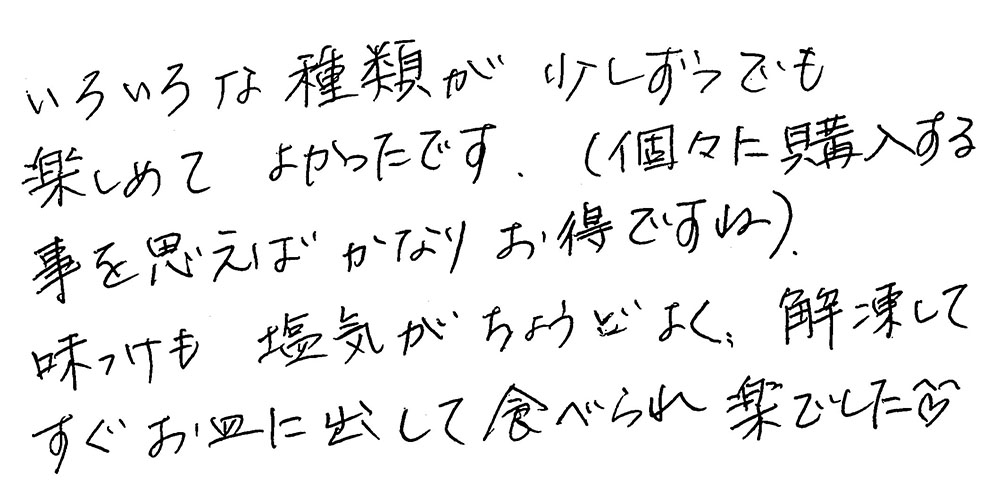 いろいろな種類が 少しずつでも
楽しめて よかったです.(個々に購入する
事を思えば かなり お得ですね).
味つけも 塩気が ちょうどよく、解凍して
すぐ お皿に出して食べられ 楽でした♡